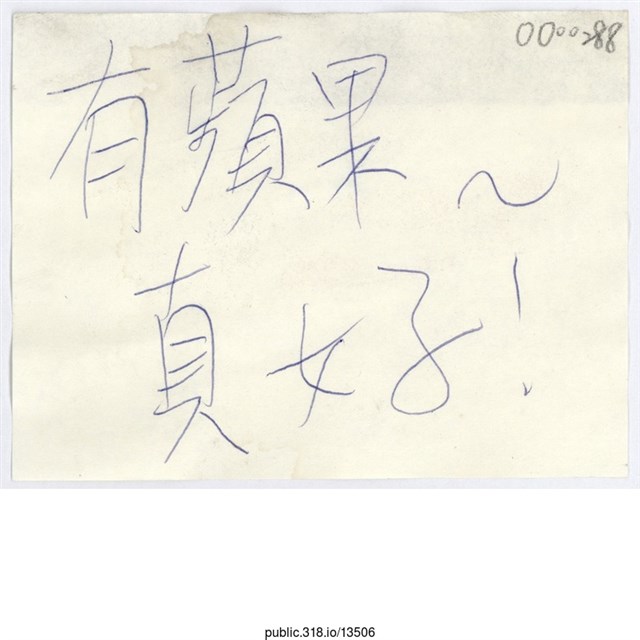 0000288
有蘋果～
真好!
public.318.io/13506